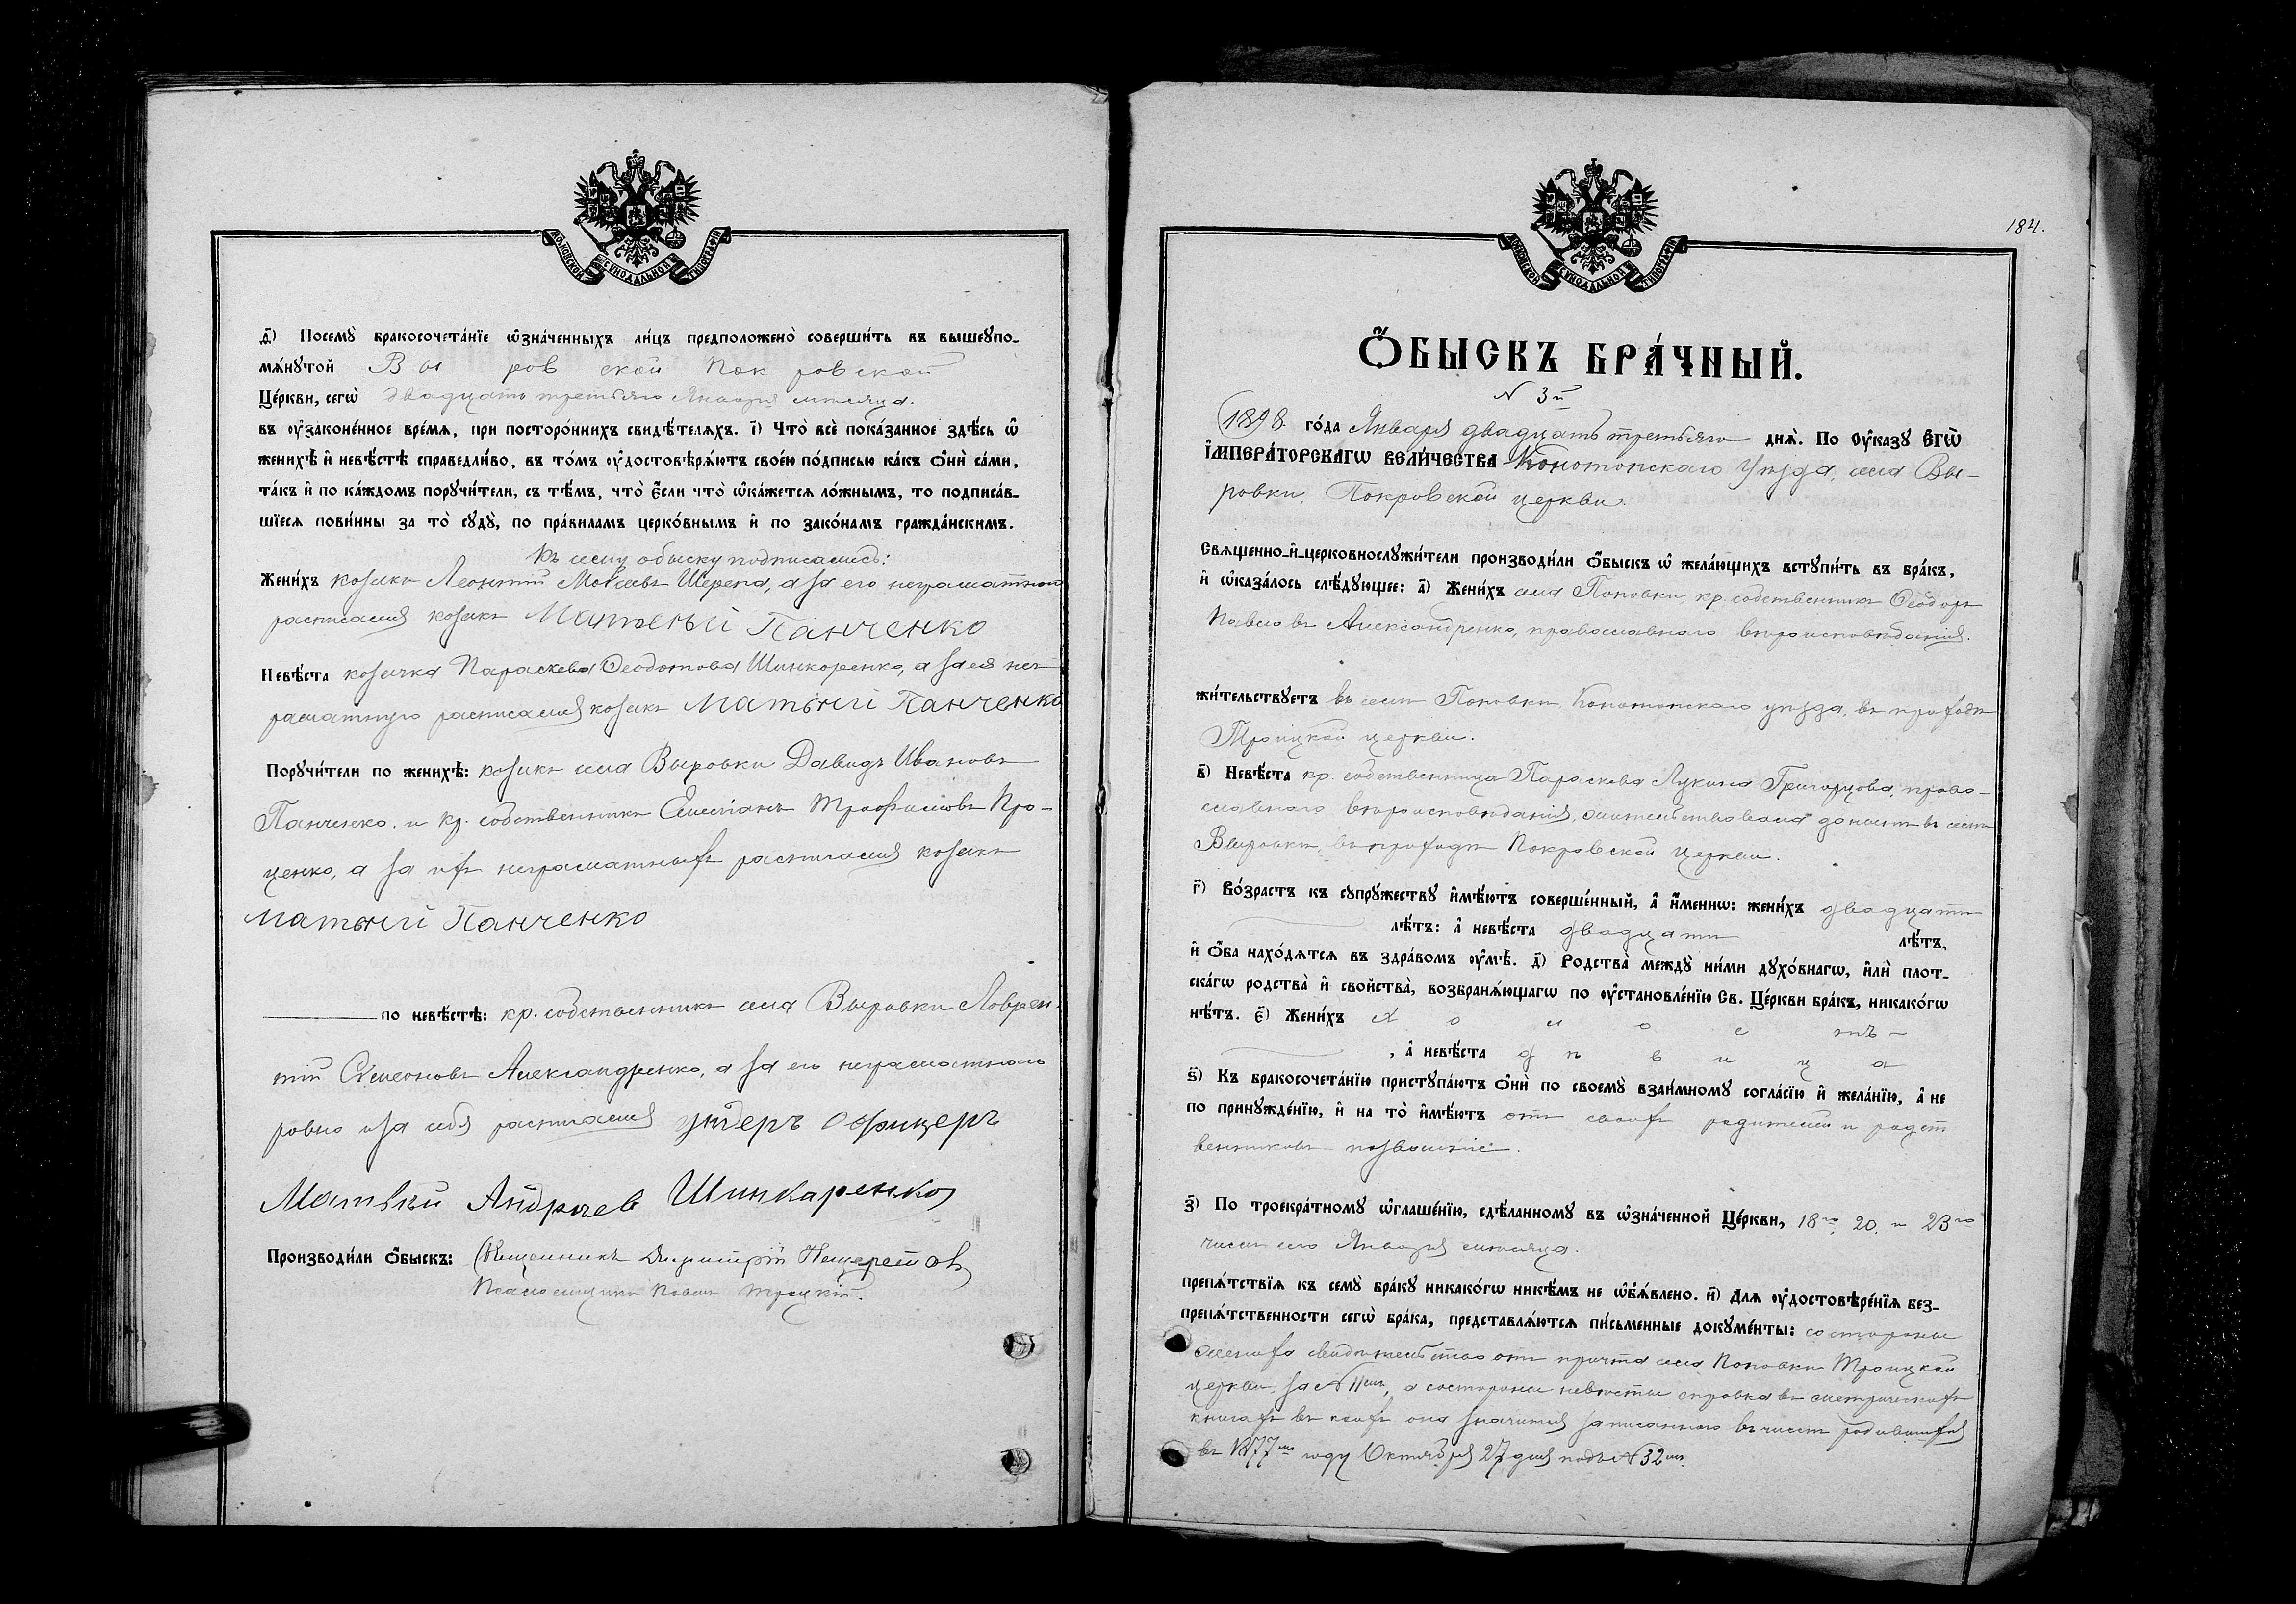 МОСКОВСКОЙ СѴНОДАЛЬНОЙ ТИПОГРАФІИ
ѳ҃) Посемꙋ̀ бракосочета́нїе ѡ҆зна́ченныхъ ли́цъ предположено̀ соверши́ть въ вышеꙋпо-
мѧ́нꙋтой Выровской Покровской
Це́ркви, сегѡ̀ двадцать третьяго Января мѣсяца.
въ ᲂу҆зако́ненное вре́мѧ, при посторо́ннихъ свидѣ́телѧхъ. і҃) Что̀ всѐ пока́занное здѣ́сь ѡ҆
женихѣ̀ и҆ невѣ́стѣ справедли́во, въ то́мъ ᲂу҆достовѣрѧ́ютъ свое́ю по́дписью ка́къ ѻ҆нѝ са́ми,
та́къ и҆ по ка́ждомъ порꙋчи́тели, съ тѣ́мъ, что̀ є҆́сли что̀ ѡ҆ка́жется ло́жнымъ, то подписа́в-
шїесѧ пови́нны за то̀ сꙋдꙋ̀, по пра́виламъ церко́внымъ и҆ по зако́намъ гражда́нскимъ.
Къ сему обыску подписались:
Жени́хъ козакъ Леонтій Моѵсеевъ Шерепа, а за его неграматного
росписался козакъ Матвѣй Панченко
Невѣ́ста козачка Параскева Ѳеодотова Шинкоренко, а за ея нег
раматную росписался козакъ Матвѣй Панченко
Порꙋчи́тели по женихѣ̀: козакъ села Выровки Давидъ Ивановъ
Панченко, и кр. собственникъ Емеліанъ Трофимовъ Про-
ценко, а за ихъ неграматныхъ росписался козакъ
Матвѣй Панченко
по невѣ́стѣ: кр. собственникъ села Выровки Лаврен-
тій Симеоновъ Александренко, а за его неграматного
ровно и за себя росписался ундеръ офицеръ
Матвѣй Андреев Шинкаренко
Производи́ли ѻ҆́быскъ: Священникъ Димитрій
Псаломщикъ Павелъ Троцкій.
184.
МОСКОВСКОЙ СѴНОДАЛЬНОЙ ТИПОГРАФІИ
Ѻ҆́БЫСКЪ БРА́ЧНЫЙ.
N 3й
1898 го́да Января двадцать третьяго днѧ̀. По ᲂу҆ка́зꙋ Є҆гѡ̀
І҆МПЕРА́ТОРСКАГѠ ВЕЛИ́ЧЕСТВА Конотопскаго уѣзда, села Вы-
ровки, Покровской церкви.
Свѧщенно-и҆-церковнослꙋжи́тели производи́ли ѻ҆́быскъ ѡ҆ жела́ющихъ встꙋпи́ть въ бра́къ,
и҆ ѡ҆каза́лось слѣ́дꙋющее: а҃) Жени́хъ села Поповки, кр. собственникъ Ѳеодоръ
Павловъ Александренко, православнаго вѣроисповѣданія.
жи́тельствꙋетъ въ селѣ Поповки, Конотопскаго уѣзда, въ приходѣ
Троицкой церкви.
в҃) Невѣ́ста кр. собственница Параскева Лукина Григорцова, право-
славнаго вѣроисповѣданія, жительствовала до ныне въ селѣ
Выровки, въ приходѣ Покровской церкви.
г҃) Во́зрастъ къ сꙋпрꙋ́жествꙋ и҆мѣ́ютъ соверше́нный, а҆ и҆́менно: жени́хъ двадцати
лѣ́тъ: а҆ невѣ́ста двадцати лѣ́тъ,
и҆ ѻ҆́ба нахо́дѧтсѧ въ здра́вомъ ᲂу҆мѣ̀. д҃) Родства̀ междꙋ̀ ни́ми дꙋхо́внагѡ, и҆лѝ плот-
ска́гѡ родства̀ и҆ сво́йства̀, возбранѧ́ющагѡ по ᲂу҆становле́нїю Св. Це́ркви бра́къ, никако́гѡ
нѣ́тъ. є҃) Жени́хъ холостъ -
, а҆ невѣ́ста дѣвица
ѕ҃) Къ бракосочета́нїю пристꙋпа́ютъ ѻ҆нѝ по своемꙋ̀ взаи́мномꙋ согла́сїю и҆ жела́нїю, а҆ не
по принꙋжде́нїю, и҆ на то̀ и҆мѣ́ютъ отъ своихъ родителей и родст
венниковъ позволеніе.
з҃) По троекра́тномꙋ ѡ҆глаше́нїю, сдѣ́ланномꙋ въ ѡ҆зна́ченной Це́ркви, 18го, 20, и 23го
чиселъ сего Января мѣсяца.
препѧ́тствїѧ къ семꙋ̀ бра́кꙋ никако́гѡ никѣ́мъ не ѡ҆бъѧ́влено. и҃) Длѧ ᲂу҆достовѣре́нїѧ без-
препѧ́тственности сегѡ̀ бра́ка, представлѧ́ютсѧ пи́сьменные докꙋме́нты: со стороны
жениха свидѣтельство отъ причта села Поповки Троицкой
церкви за N 11мъ, а состороны невѣсты справка въ метрическихъ
книгахъ въ коихъ она значится записанною въ числѣ родившихся
въ 1877мъ году Октября 27 дня подъ N 32мъ.